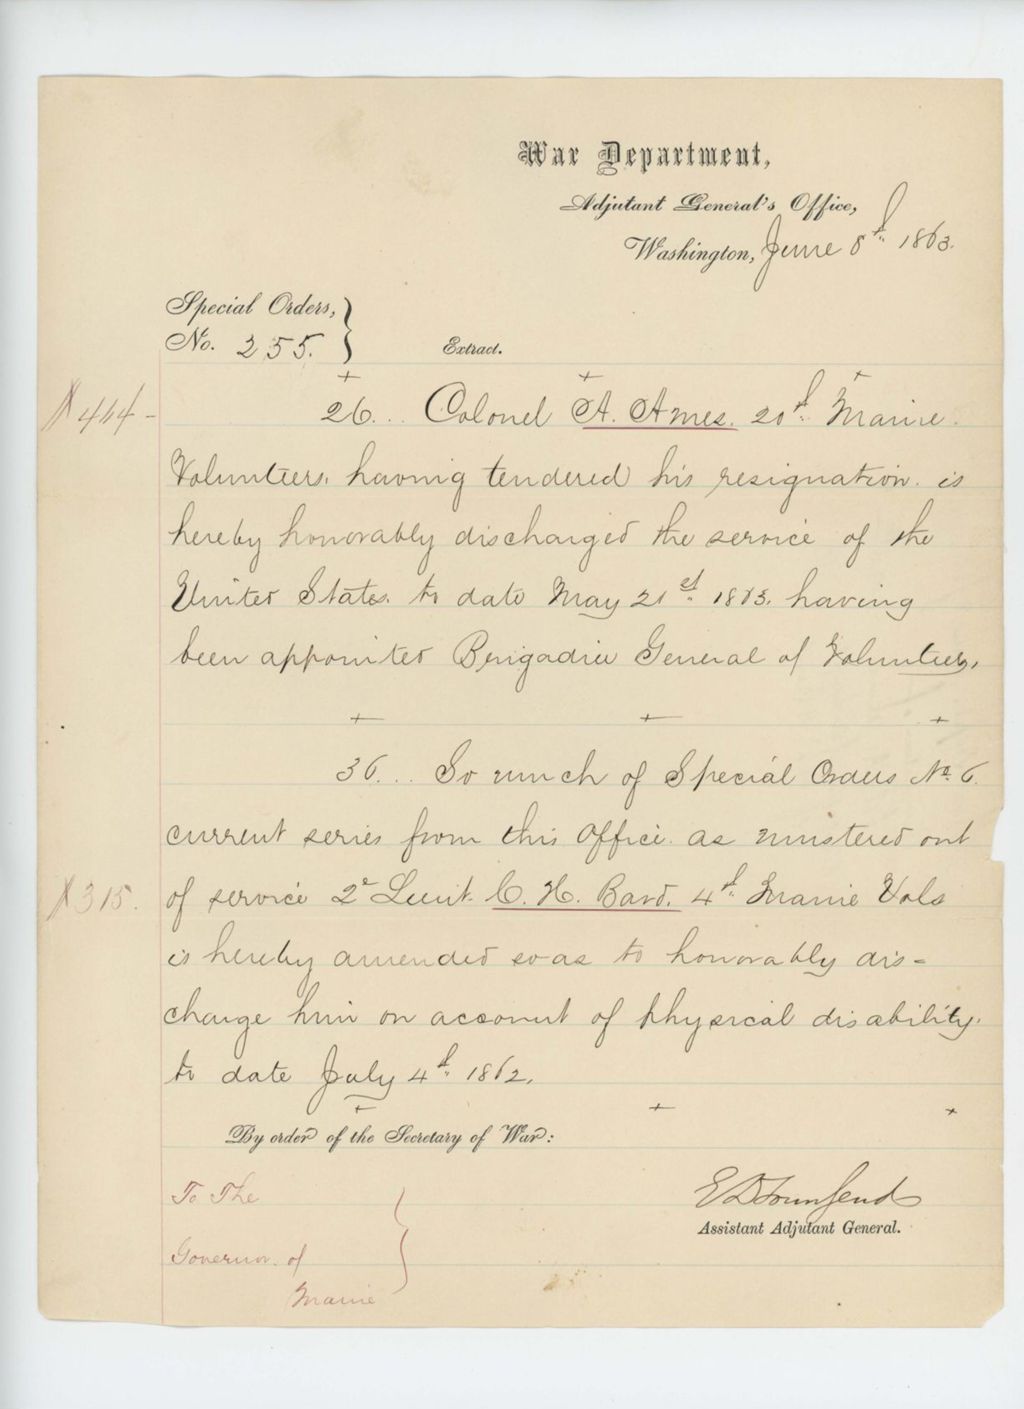 War Department,
Adjutant General's Office,
Washington, June 8th 1863.
Special Orders,
No. 255.
Extract.
+ + +
464
26... Colonel A. Ames. 20th Maine
Volunteers, having tendered his resignation is
hereby honorably discharged the service of the
United States. to date May 21st 1863. having
been appointed Brigadier General of Volunteers.
+ + +
36... So much of Special Orders No 6.
current series from this Office. as mustered out
315.
of service 2d Lieut. C. H. Bard. 4th Maine Vols
is hereby amended so as to honorably dis=
charge him on account of physical disability.
to date July 4th 1862.
+ + +
By order of the Secretary of War:
To The
Governor of
Maine
E D Townsend
Assistant Adjutant General.